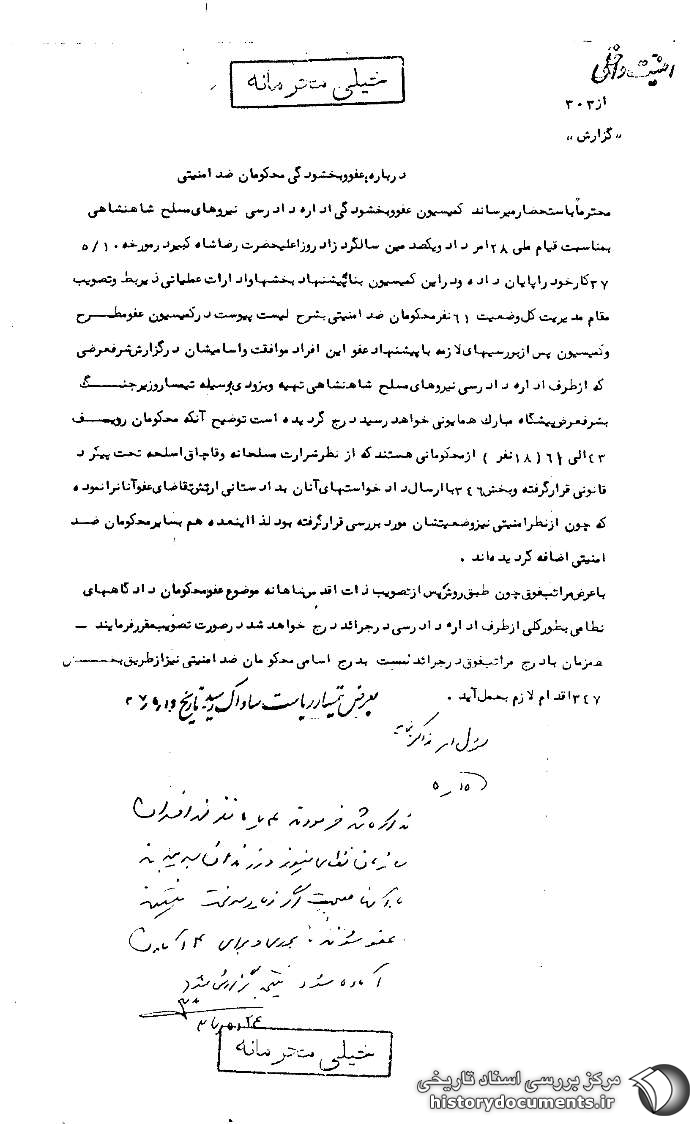 خیلی محرمانه
امنیت داخلی
از ۳۰۳
«گزارش»
درباره: عفو و بخشودگی محکومان ضد امنیتی
محترما باستحضار میرساند کمیسیون عفو و بخشودگی اداره دادرسی نیروهای مسلح شاهنشاهی
بمناسبت قیام ملی ۲۸ امرداد و یکصدمین سالگرد زاد روز اعلیحضرت رضاشاه کبیر در مورخه ۵/۱۰/
۳۷ کار خود را پایان داده و در این کمیسیون بنا به پیشنهاد بخشها و ادارات عملیاتی ذیربط و تصویب
مقام مدیریت کل وضعیت ۶۱ نفر محکومان ضد امنیتی بشرح لیست پیوست در کمیسیون عفو مطرح
و کمیسیون پس از بررسیهای لازمه با پیشنهاد عفو این افراد موافقت و اسامیشان در گزارش شرفعرضی
که از طرف اداره دادرسی نیروهای مسلح شاهنشاهی تهیه و بزودی بوسیله تیمسار وزیر جنگ
بشرفعرض پیشگاه مبارک همایونی خواهد رسید درج گردیده است توضیح آنکه محکومان ردیف
۴۳ الی ۶۱ (۱۸ نفر) از محکومانی هستند که از نظر شرارت مسلحانه و قاچاق اسلحه تحت پیگرد
قانونی قرار گرفته و بخش ۳۴۶ با ارسال دادخواستهای آنان به دادستانی ارتش تقاضای عفو آنانرا نموده
که چون از نظر امنیتی نیز وضعیتشان مورد بررسی قرار گرفته بود لذا اینعده هم بسایر محکومان ضد
امنیتی اضافه گردیده‌اند.
با عرض مراتب فوق چون طبق روش پس از تصویب ذات اقدس شاهانه موضوع عفو محکومان دادگاههای
نظامی بطور کلی از طرف اداره دادرسی در جرائد درج خواهد شد در صورت تصویب مقرر فرمایند
همزمان با درج مراتب فوق در جرائد نسبت بدرج اسامی محکومان ضد امنیتی نیز از طریق بخش
۳۴۷ اقدام لازم بعمل آید.
بعرض تیمسار ریاست ساواک رسید تاریخ
مذاکره شد فرمودند
عفو شوند
آماده شود نتیجه گزارش شود
خیلی محرمانه
مرکز بررسی اسناد تاریخی
historydocuments.ir